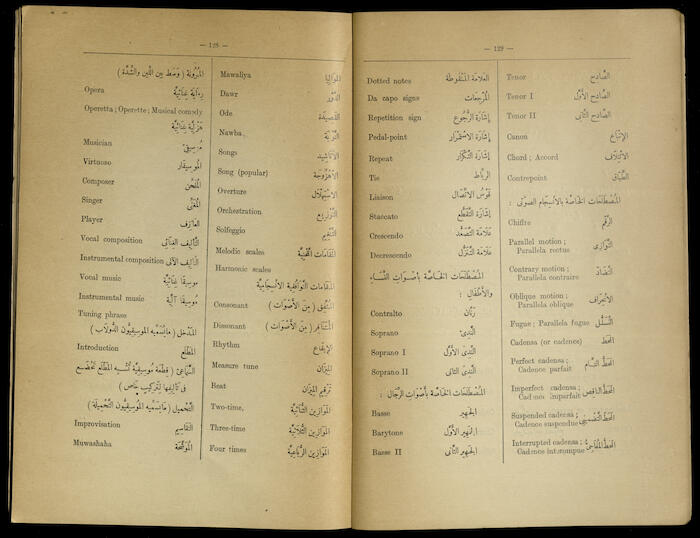 — 128 —
المرونة ( وسط بين اللين والشدة )
Opera رواية غنائية
Operetta ; Operette ; Musical comedy
هزلية غنائية
Musician موسيقى
Virtuoso الموسيقار
Composer الملحن
Singer المغنى
Player العازف
Vocal composition التأليف الغنائى
Instrumental composition التأليف الآلى
Vocal music موسيقا غنائية
Instrumental music موسيقا آلية
Tuning phrase
المدخل ( مايسميه الموسيقيون الدولاب )
Introduction المطلع
السماعى ( قطعة موسيقية تشبه المطلع تخضع
فى تأليفها لتركيب خاص )
التحميل ( مايسميه الموسيقيون التحميلة )
Improvisation التقاسيم
Muwashaha الموشحة
Mawaliya المواليا
Dawr الدور
Ode القصيدة
Nawba النوبة
Songs الأناشيد
Song (popular) الأهزوجة
Overture الاستهلال
Orchestration التوزيع
Solfeggio التنغيم
Melodic scales المقامات اللحنية
Harmonic scales
المقامات التوافقية الانسجامية
Consonant المتفق ( من الأصوات )
Dissonant المتنافر ( من الأصوات )
Rhythm الإيقاع
Measure tune الميزان
Beat ترقيم الميزان
Two-time, الموازين الثنائية
Three-time الموازين الثلاثية
Four times الموازين الرباعية
— 129 —
Dotted notes العلامة المنقوطة
Da capo signs المرجعات
Repetition sign إشارة الرجوع
Pedal-point إشارة الاستقرار
Repeat إشارة التكرار
Tie الرباط
Liaison قوس الاتصال
Staccato إشارة التقطع
Crescendo علامة التصعد
Decrescendo علامة التنزل
المصطلحات الخاصة بأصوات النساء
والأطفال :
Contralto رنان
Soprano الندى
Soprano I الندى الأول
Soprano II الندى الثانى
المصطلحات الخاصة بأصوات الرجال :
Basse الجهير
Barytone الجهير الأول
Basse II الجهير الثانى
Tenor الصادح
Tenor I الصادح الأول
Tenor II الصادح الثانى
Canon الإتباع
Chord ; Accord الائتلاف
Contrepoint الطباق
المصطلحات الخاصة بالانسجام الصوتى :
Chiffre الرقم
Parallel motion ;
Parallela rectus التوازى
Contrary motion ;
Parallela contraire التضاد
Oblique motion ;
Parallela oblique الانحراف
Fugue ; Parallela fugue التسلل
Cadensa (or cadence) المحط
Perfect cadensa ;
Cadence parfait المحط التام
Imperfect cadensa ;
Cadence imparfait المحط الناقص
Suspended cadensa ;
Cadence suspendue
Interrupted cadensa ;
Cadence interompue المحط المفاجئ